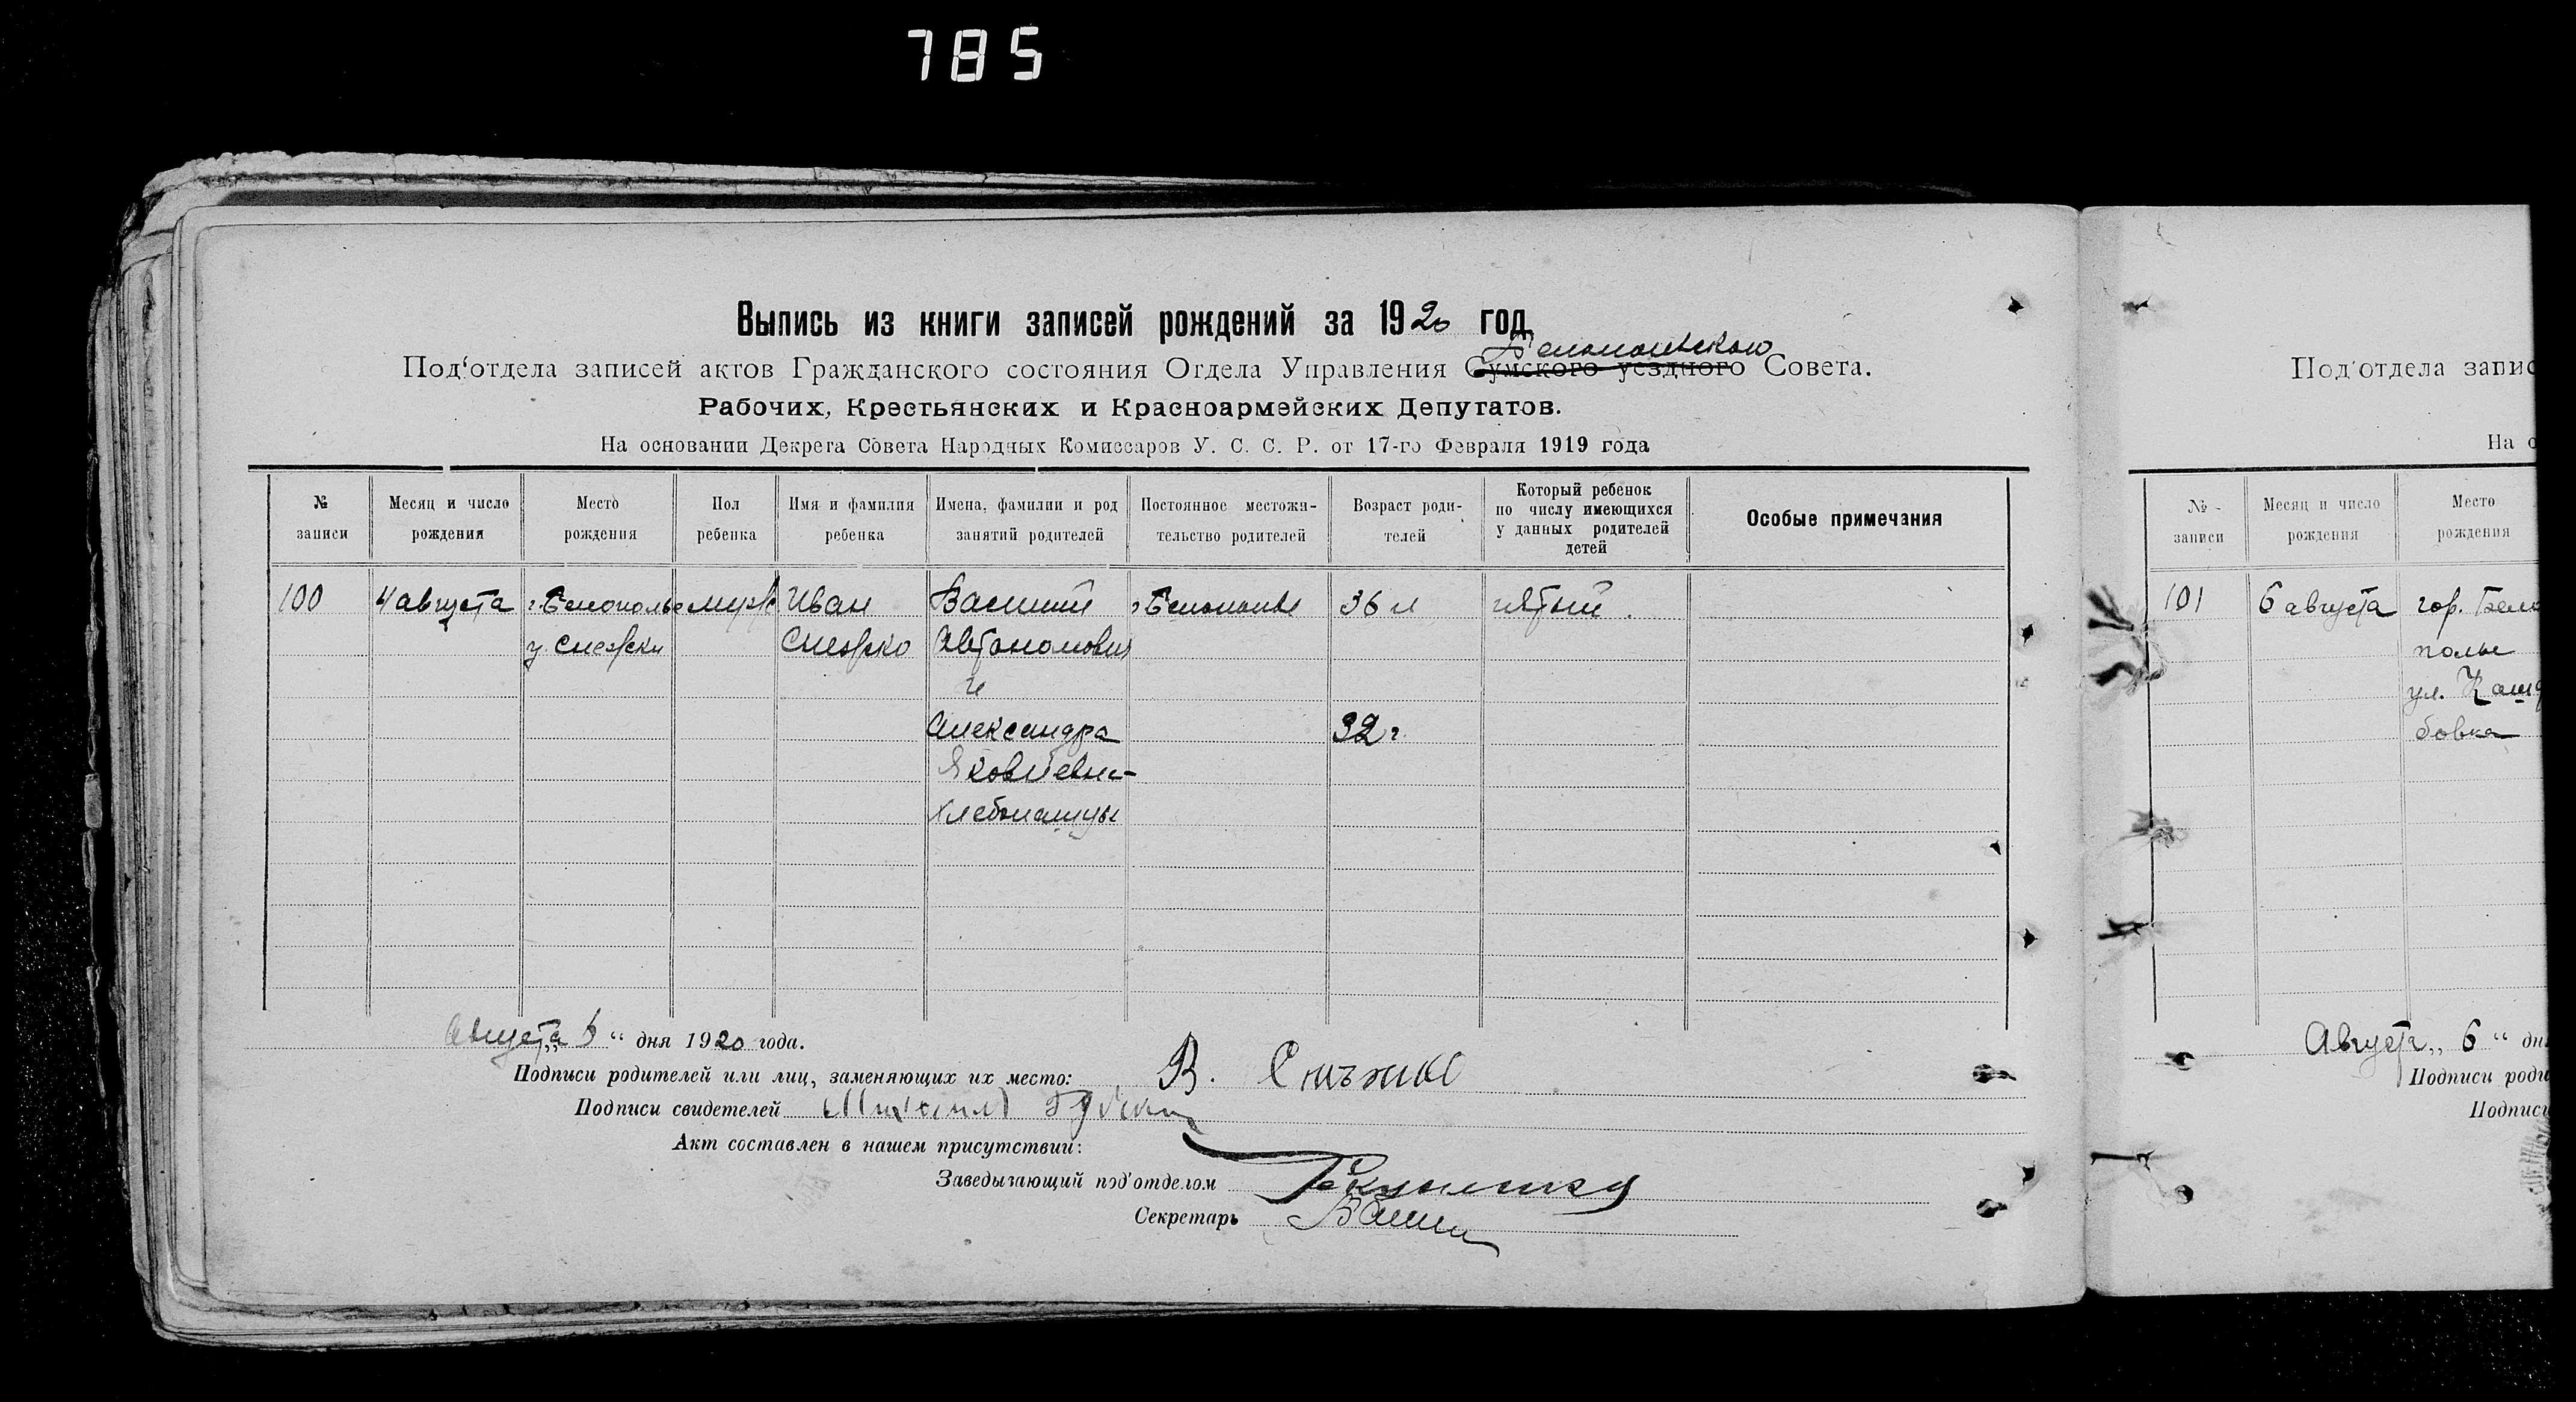 785
Выпись из книги записей рождений за 1920 год,
Белопольского
Под'отдела записей актов Гражданского состояния Отдела Управления Сумского уездного Совета.
Рабочих, Крестьянских и Красноармейских Депутатов.
На основании Декрета Совета Народных Комиссаров У. С. С. Р. от 17-го Февраля 1919 года
№ записи
Месяц и число рождения
Место рождения
Пол ребенка
Имя и фамилия ребенка
Имена, фамилии и род занятий родителей
Постоянное местожительство родителей
Возраст родителей
Который ребенок по числу имеющихся у данных родителей детей
Особые примечания
100 4 августа г. Белополье муж Иван Василий г Белополье 36 л пятый.
Снежко Автономович
и
Александра 32 г.
Яковлевна
хлебопашцы
Августа „5“ дня 1920 года.
Подписи родителей или лиц, заменяющих их место: В. Снъжко
Подписи свидетелей Михаил
Акт составлен в нашем присутствии:
Заведывающий под'отделом
Секретарь
Под'отдела запис
На о
№ записи
Месяц и число рождения
Место рождения
101 6 августа гор. Бело
полье
ул.
бовка
Августа „6“ дн
Подписи роди
Подписи